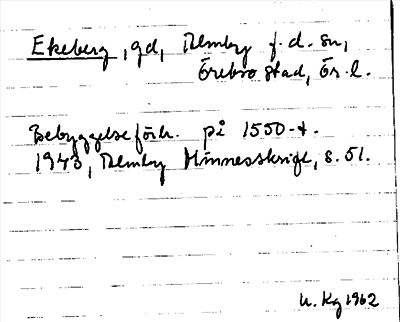 Ekeberg, gd, Almby f.d. sn,
Örebro stad, Ör. l.
Bebyggelseförh. på 1550-t.
1943, Almby Minnesskrift, s. 51.
U. Kg 1962